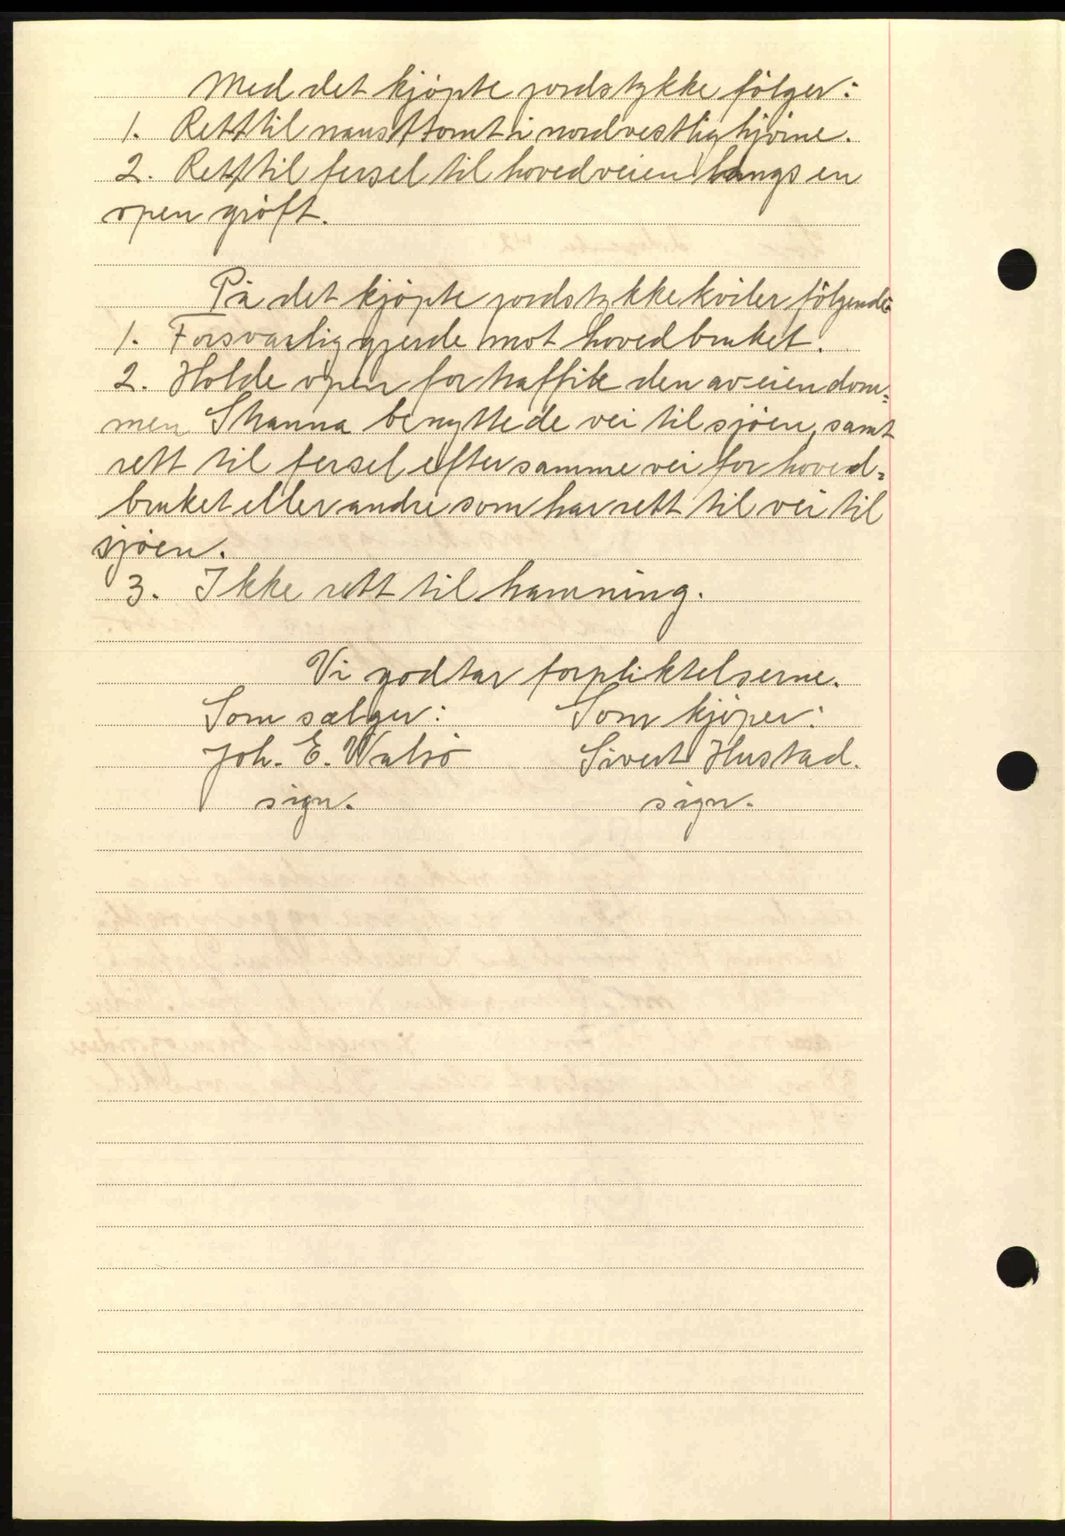 Med det kjøpte jordstykke følger:
1. Rett til nausttomt i nordvestlig hjörne.
2. Rett til fersel til hovedveien langs en
open grøft.
På det kjøpte jordstykke kviler følgende:
1. Forsvarlig gjerde mot hovedbruket.
2. Holde open for traffik den av eiendom=
men Skanna benyttede vei til sjöen, samt
rett til fersel efter samme vei for hoved=
bruket eller andre som har rett til vei til
sjöen.
3. Ikke rett til hamning.
Vi godtar forpliktelserne.
Som sælger: Som kjøper:
Joh. E. Walsö Sivert Hustad.
sign. sign.